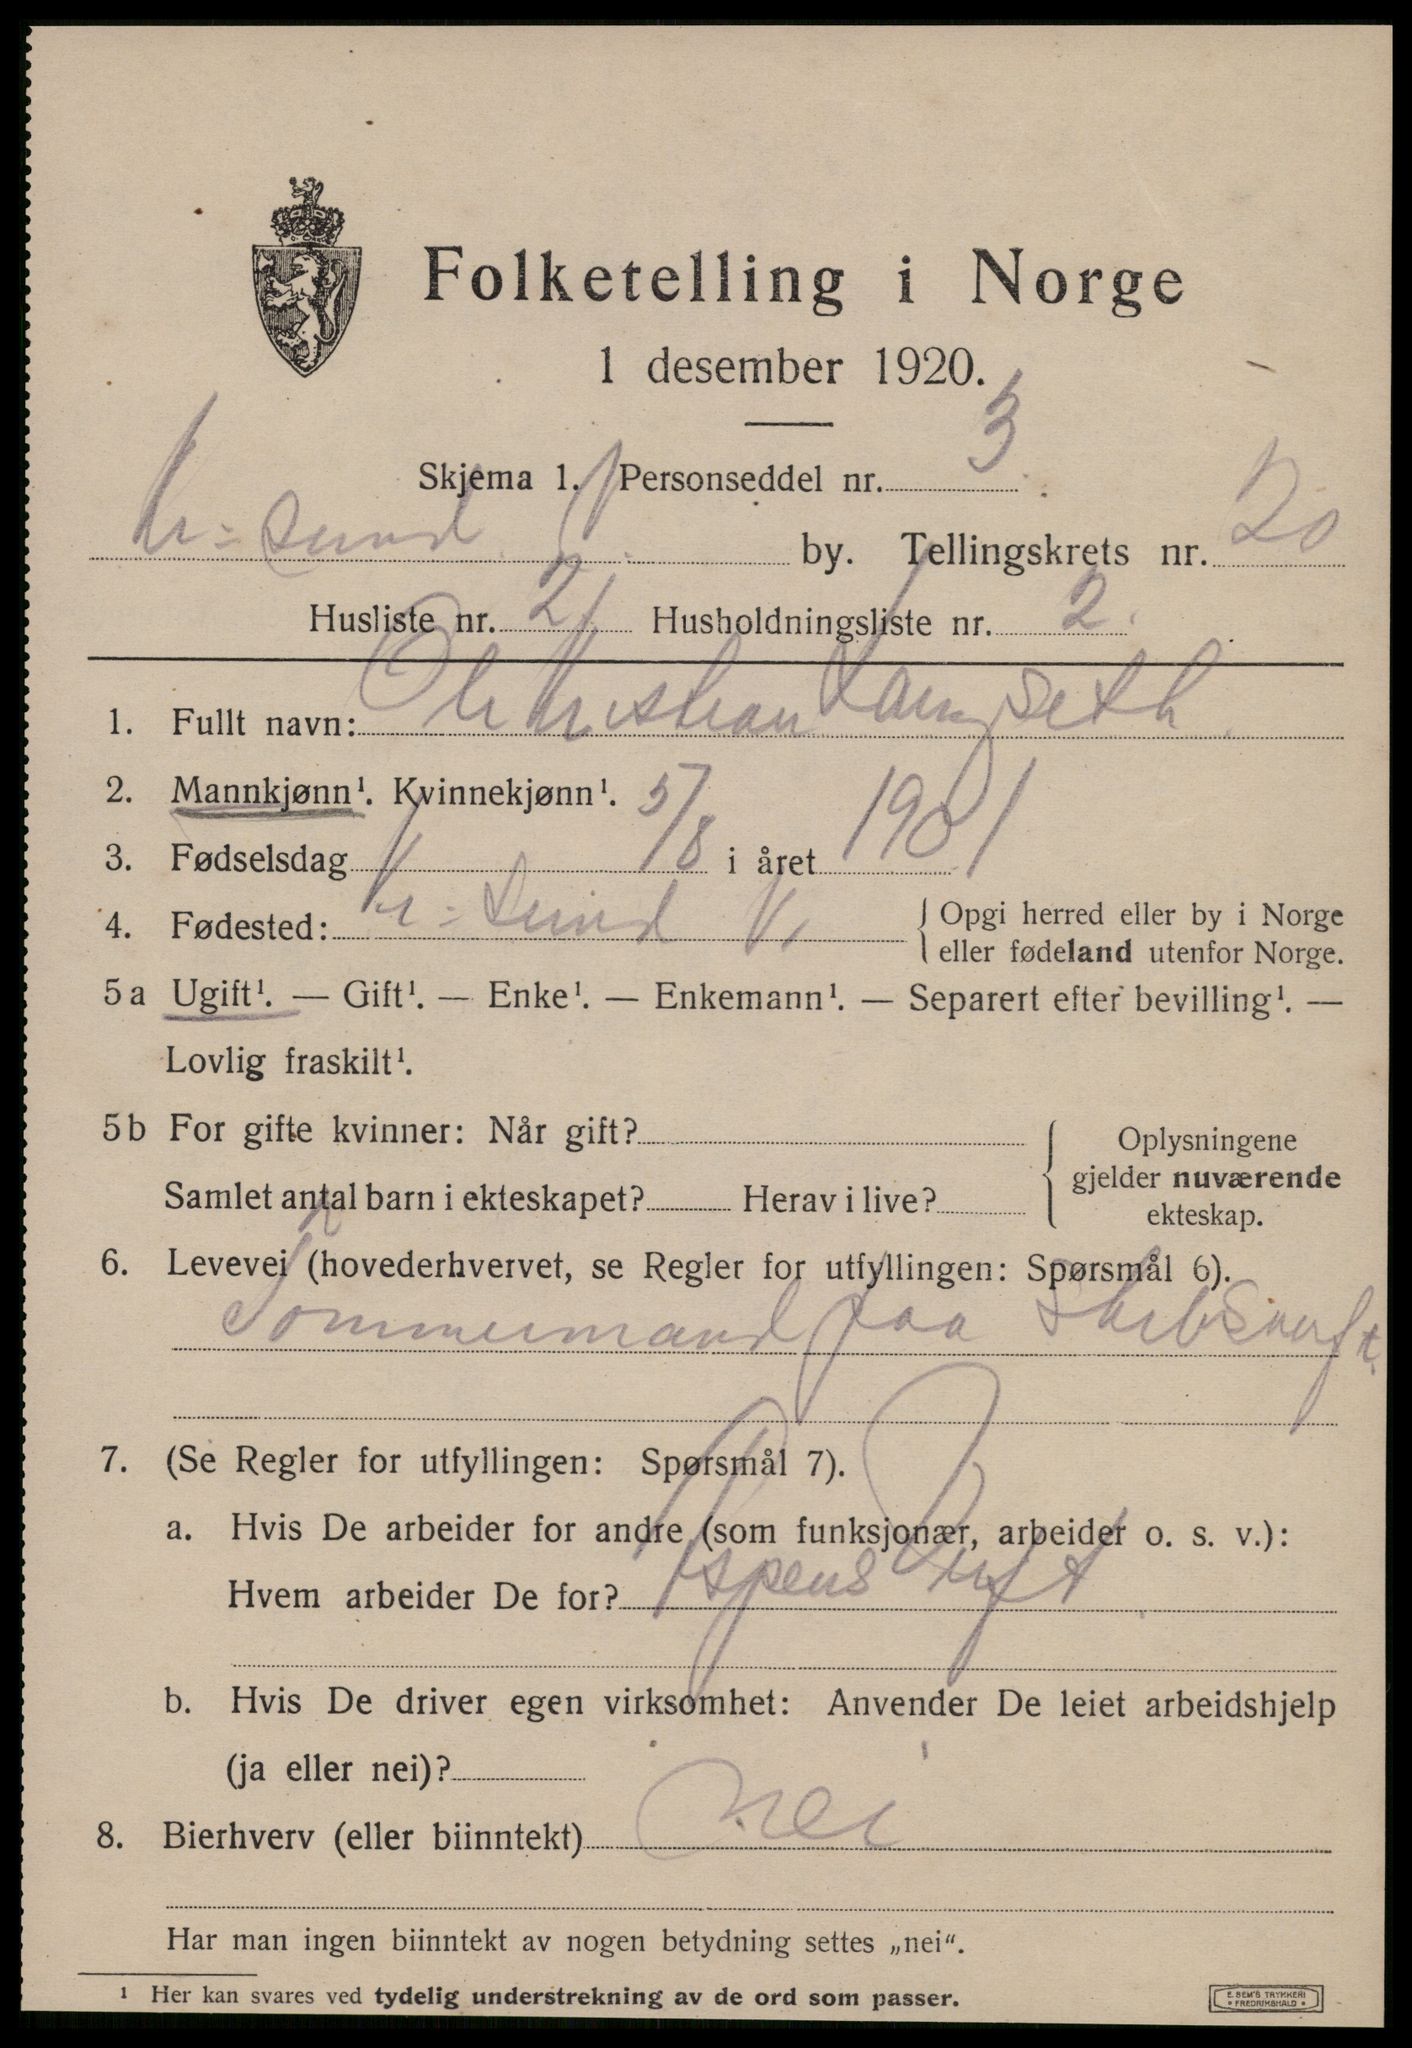 Folketelling i Norge
1 desember 1920.
Skjema 1. Personseddel nr. 3
Kr-sund N. by. Tellingskrets nr. 20
Husliste nr. 21 Husholdningsliste nr. 2.
1. Fullt navn: Ole Kristian Langseth.
2. Mannkjønn¹. Kvinnekjønn¹.
3. Fødselsdag 5/8 i året 1901
4. Fødested: Kr-sund N. { Opgi herred eller by i Norge
eller fødeland utenfor Norge.
5a Ugift¹. — Gift¹. — Enke¹. — Enkemann¹. — Separert efter bevilling¹. —
Lovlig fraskilt¹.
5b For gifte kvinner: Når gift?
Samlet antal barn i ekteskapet? Herav i live?
{ Oplysningene
gjelder nuværende
ekteskap.
6. Levevei (hovederhvervet, se Regler for utfyllingen: Spørsmål 6).
Tømmermand paa Skibsverft.
7. (Se Regler for utfyllingen: Spørsmål 7).
a. Hvis De arbeider for andre (som funksjonær, arbeider o. s. v.):
Hvem arbeider De for?
b. Hvis De driver egen virksomhet: Anvender De leiet arbeidshjelp
(ja eller nei)?
8. Bierhverv (eller biinntekt) nei
Har man ingen biinntekt av nogen betydning settes „nei“.
¹ Her kan svares ved tydelig understrekning av de ord som passer.
E. SEM'S TRYKKERI
* FREDRIKSHALD *